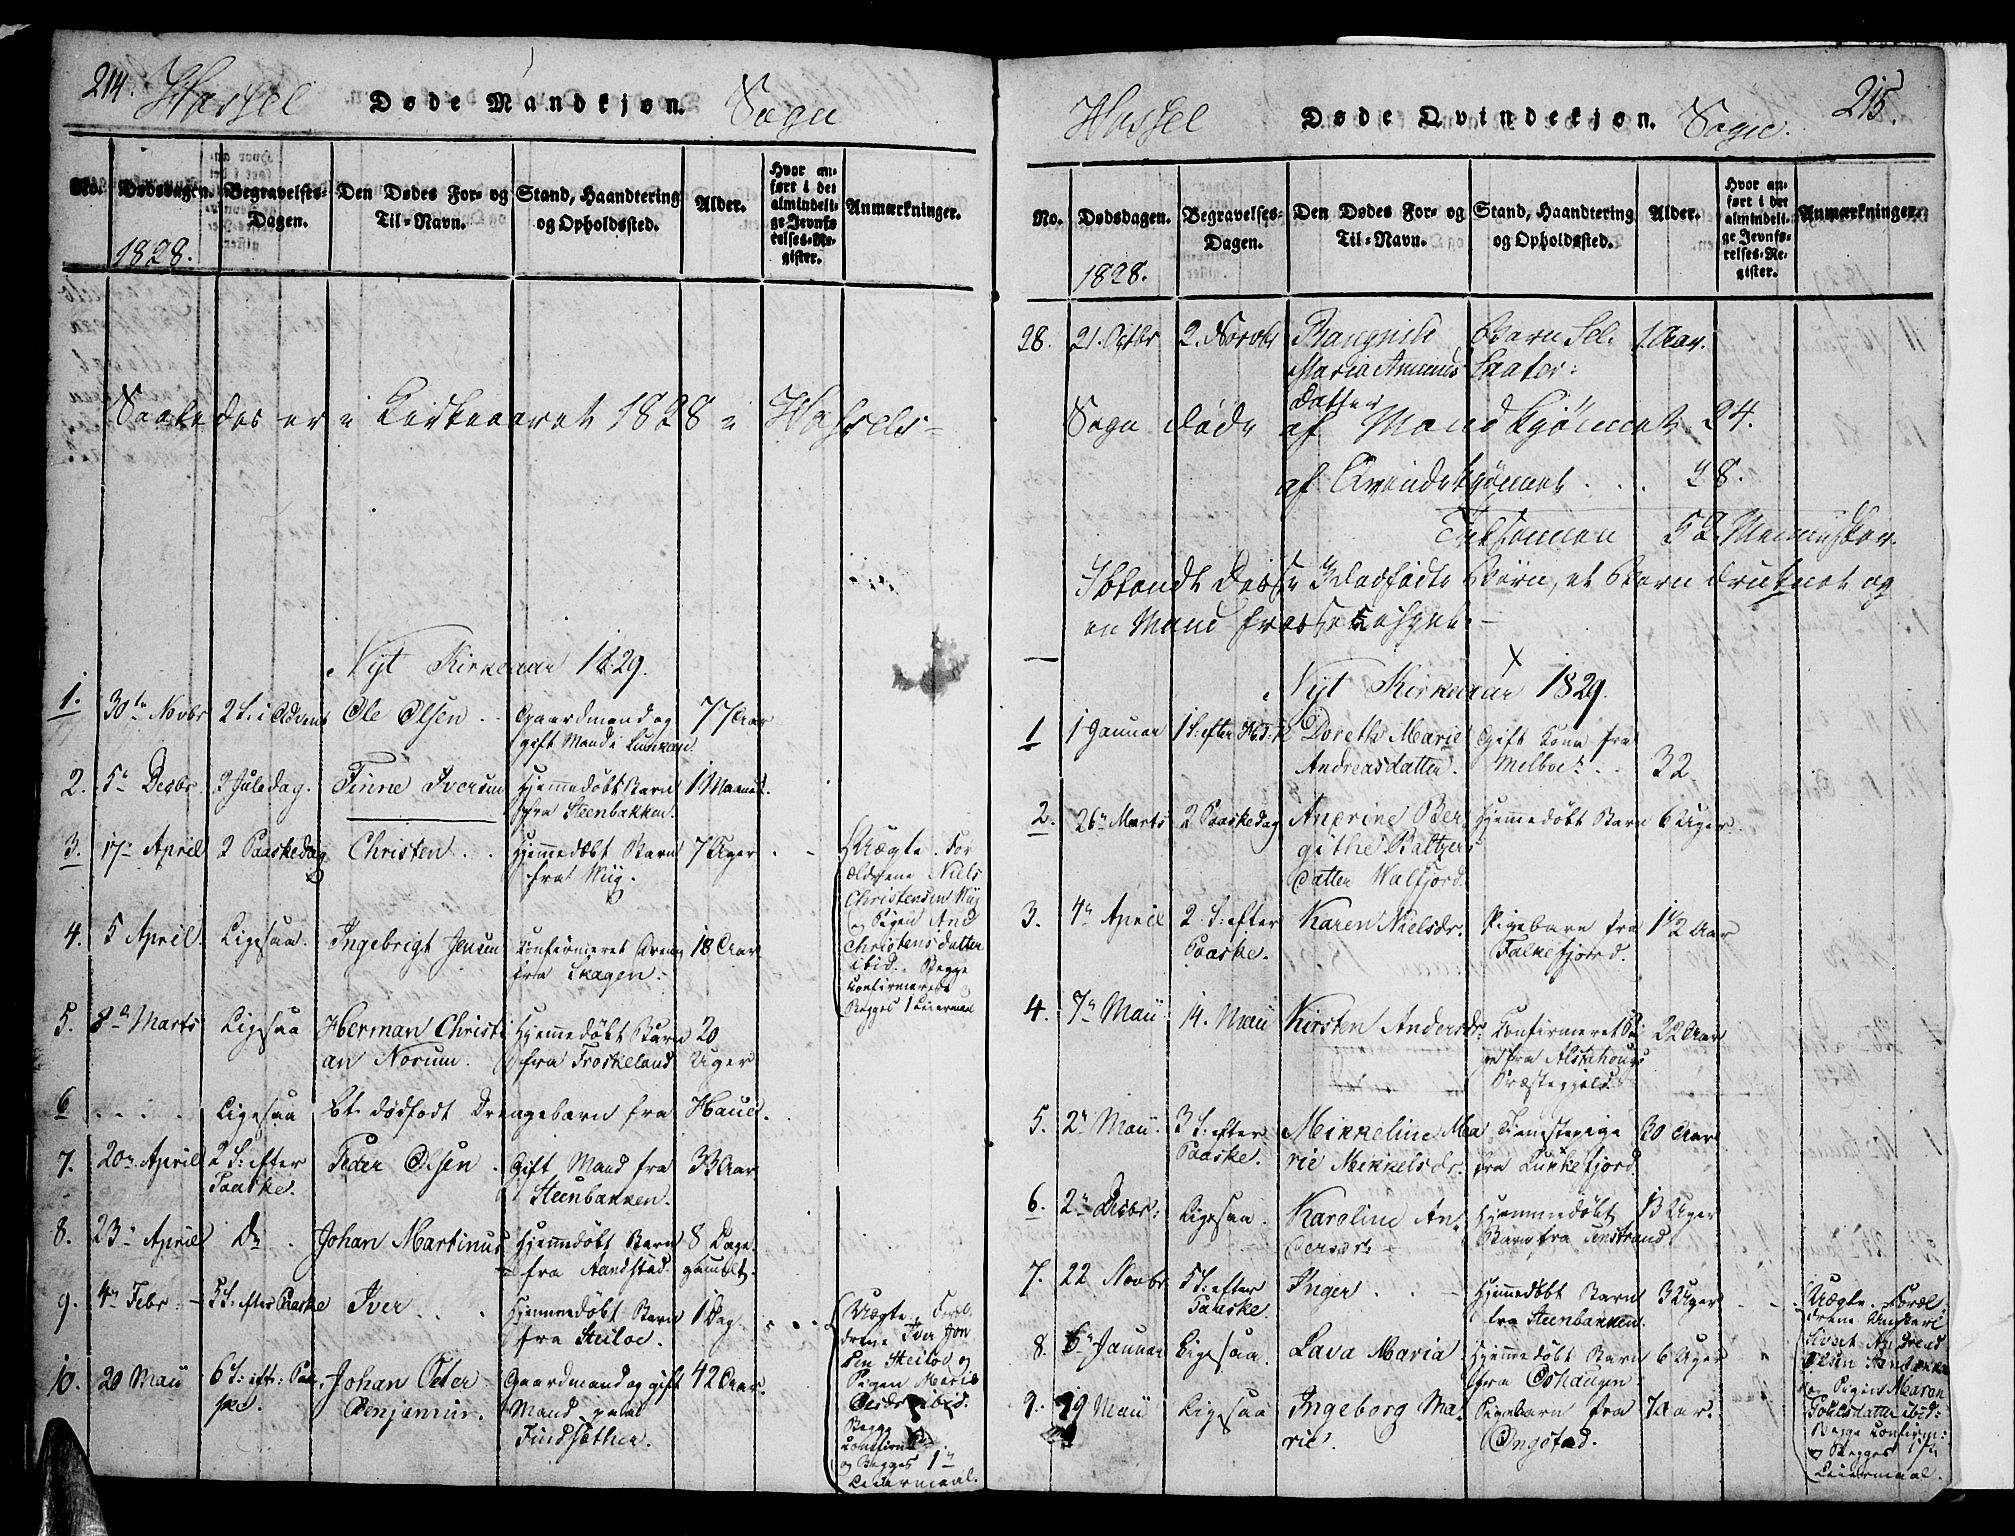 214. Hassel Døde Mandkjøn. Sogn
No. Dødsdagen. Begravelses-Dagen. Den Dødes For- og Til-Navn. Stand, Haandtering og Opholdssted. Alder. Hvor anført i det almindelige Jevnførelses-Register. Anmærkninger.
1828.
Saaledes er i Kirkeaaret 1828 i Hassels-
Nyt Kirkeaar 1829.
1. 30te Novbr 2 S: i Advent Ole Olsen Gaardmand og gift Mand i 77 Aar
2. 5te Decbr 2 Juledag. Finne Iversen Hjemmedøbt Barn fra Steenbakken. 1 Maaned.
3. 17de April 2 Paaskedag Christen Hjemmedøbt Barn fra Wiig. 7 Uger
Uægte. Forældrene Niels Christensen Wiig og Pigen Ane Christensdatter ibid. Begge Confirmerede Begges 1 Leiermaal
4. 5 April. Ligesaa. Ingebrigt Jensen Confirmeret Dreng fra Skagen. 18 Aar
5. 8de Marts Ligesaa Herman Christian Norum. Hjemmedøbt Barn fra Froskeland 20 Uger
6 Ligesaa Et dødfødt Drengebarn fra Haue.
7. 20de April 2 S: efter Paaske. Peder Olsen Gift Mand fra Steenbakken. 33 Aar
8. 23de April Do Johan Martinus Hjemmedøbt Barn fra Sandstad. 8 Dage gammelt.
9. 4de Febr 5 S: efter Paaske Iver Hjemmedøbt Barn fra Steiloe. 1 Dag.
Uægte. Forældrene Iver Jonsen Steiloe og Pigen Marie ibid. Begge Confirm: og Begges 1ste Leiermaal.
10. 20 Maii 6 S: eft: Paaske. Johan Peter Benjamins. Gaardmand og gift Mand paa Findsæther. 42 Aar.
Hassel Døde Qvindekjøn. Sogn. 215.
No. Dødsdagen. Begravelses-Dagen. Den Dødes For- og Til-Navn. Stand, Haandtering og Opholdssted. Alder. Hvor anført i det almindelige Jevnførelses-Register. Anmærkninger.
1828.
28. 21. Octbr 2. Novbr Maria Amunds Datter Barn 1 Aar.
Sogn døde af Mandkjønnet 24.
af Qvindekjønnet . . . 28.
Tilsammen 52 Mennesker.
Iblandt Disse 3 Dødfødte Børn, et Barn druknet og
en Mand
Nyt Kirkeaar 1829.
1 1 Januar 1 S: efter H: 3 K Doreth Marie Andreasdatter. Gift Kone fra Melboe. 32
2. 26de Marts 2 Paaskedag Anerine Bergithe Baltzersdatter Walfjord. Hjemmedøbt Barn 6 Uger.
3. 4de April 2 S: efter Paaske. Karen Nielsdr. Pigebarn fra Falkefjord. 1½ Aar
4. 7de Maii 14. Maii Kirsten Andersdr. Confirmeret Pige fra Alstahougs Præstegjeld. 22 Aar
5. 2de Maii. 3 S: efter Paaske. Mikkeline Marie Mikkelsdr. Tjenestepige fra Lunkefjord 30 Aar
6. 2de Decbr: Ligesaa. Karoline Andersdr. Hjemmedøbt Barn fra 13 Uger
7. 22 Novbr 5 S: efter Paaske. Inger Hjemmedøbt Barn fra Steenbakken. 3 Uger
Uægte. Forældrene Olsen og Pigen Maren ibid: Begge Confirm: og Begges 1ste Leiermaal.
8. 6te Januar Ligesaa. Lava Maria Hjemmedøbt Barn fra 6 Uger
9. 19 Maii Ligesaa Ingeborg Marie. Pigebarn fra Ongstad. 7 Aar.